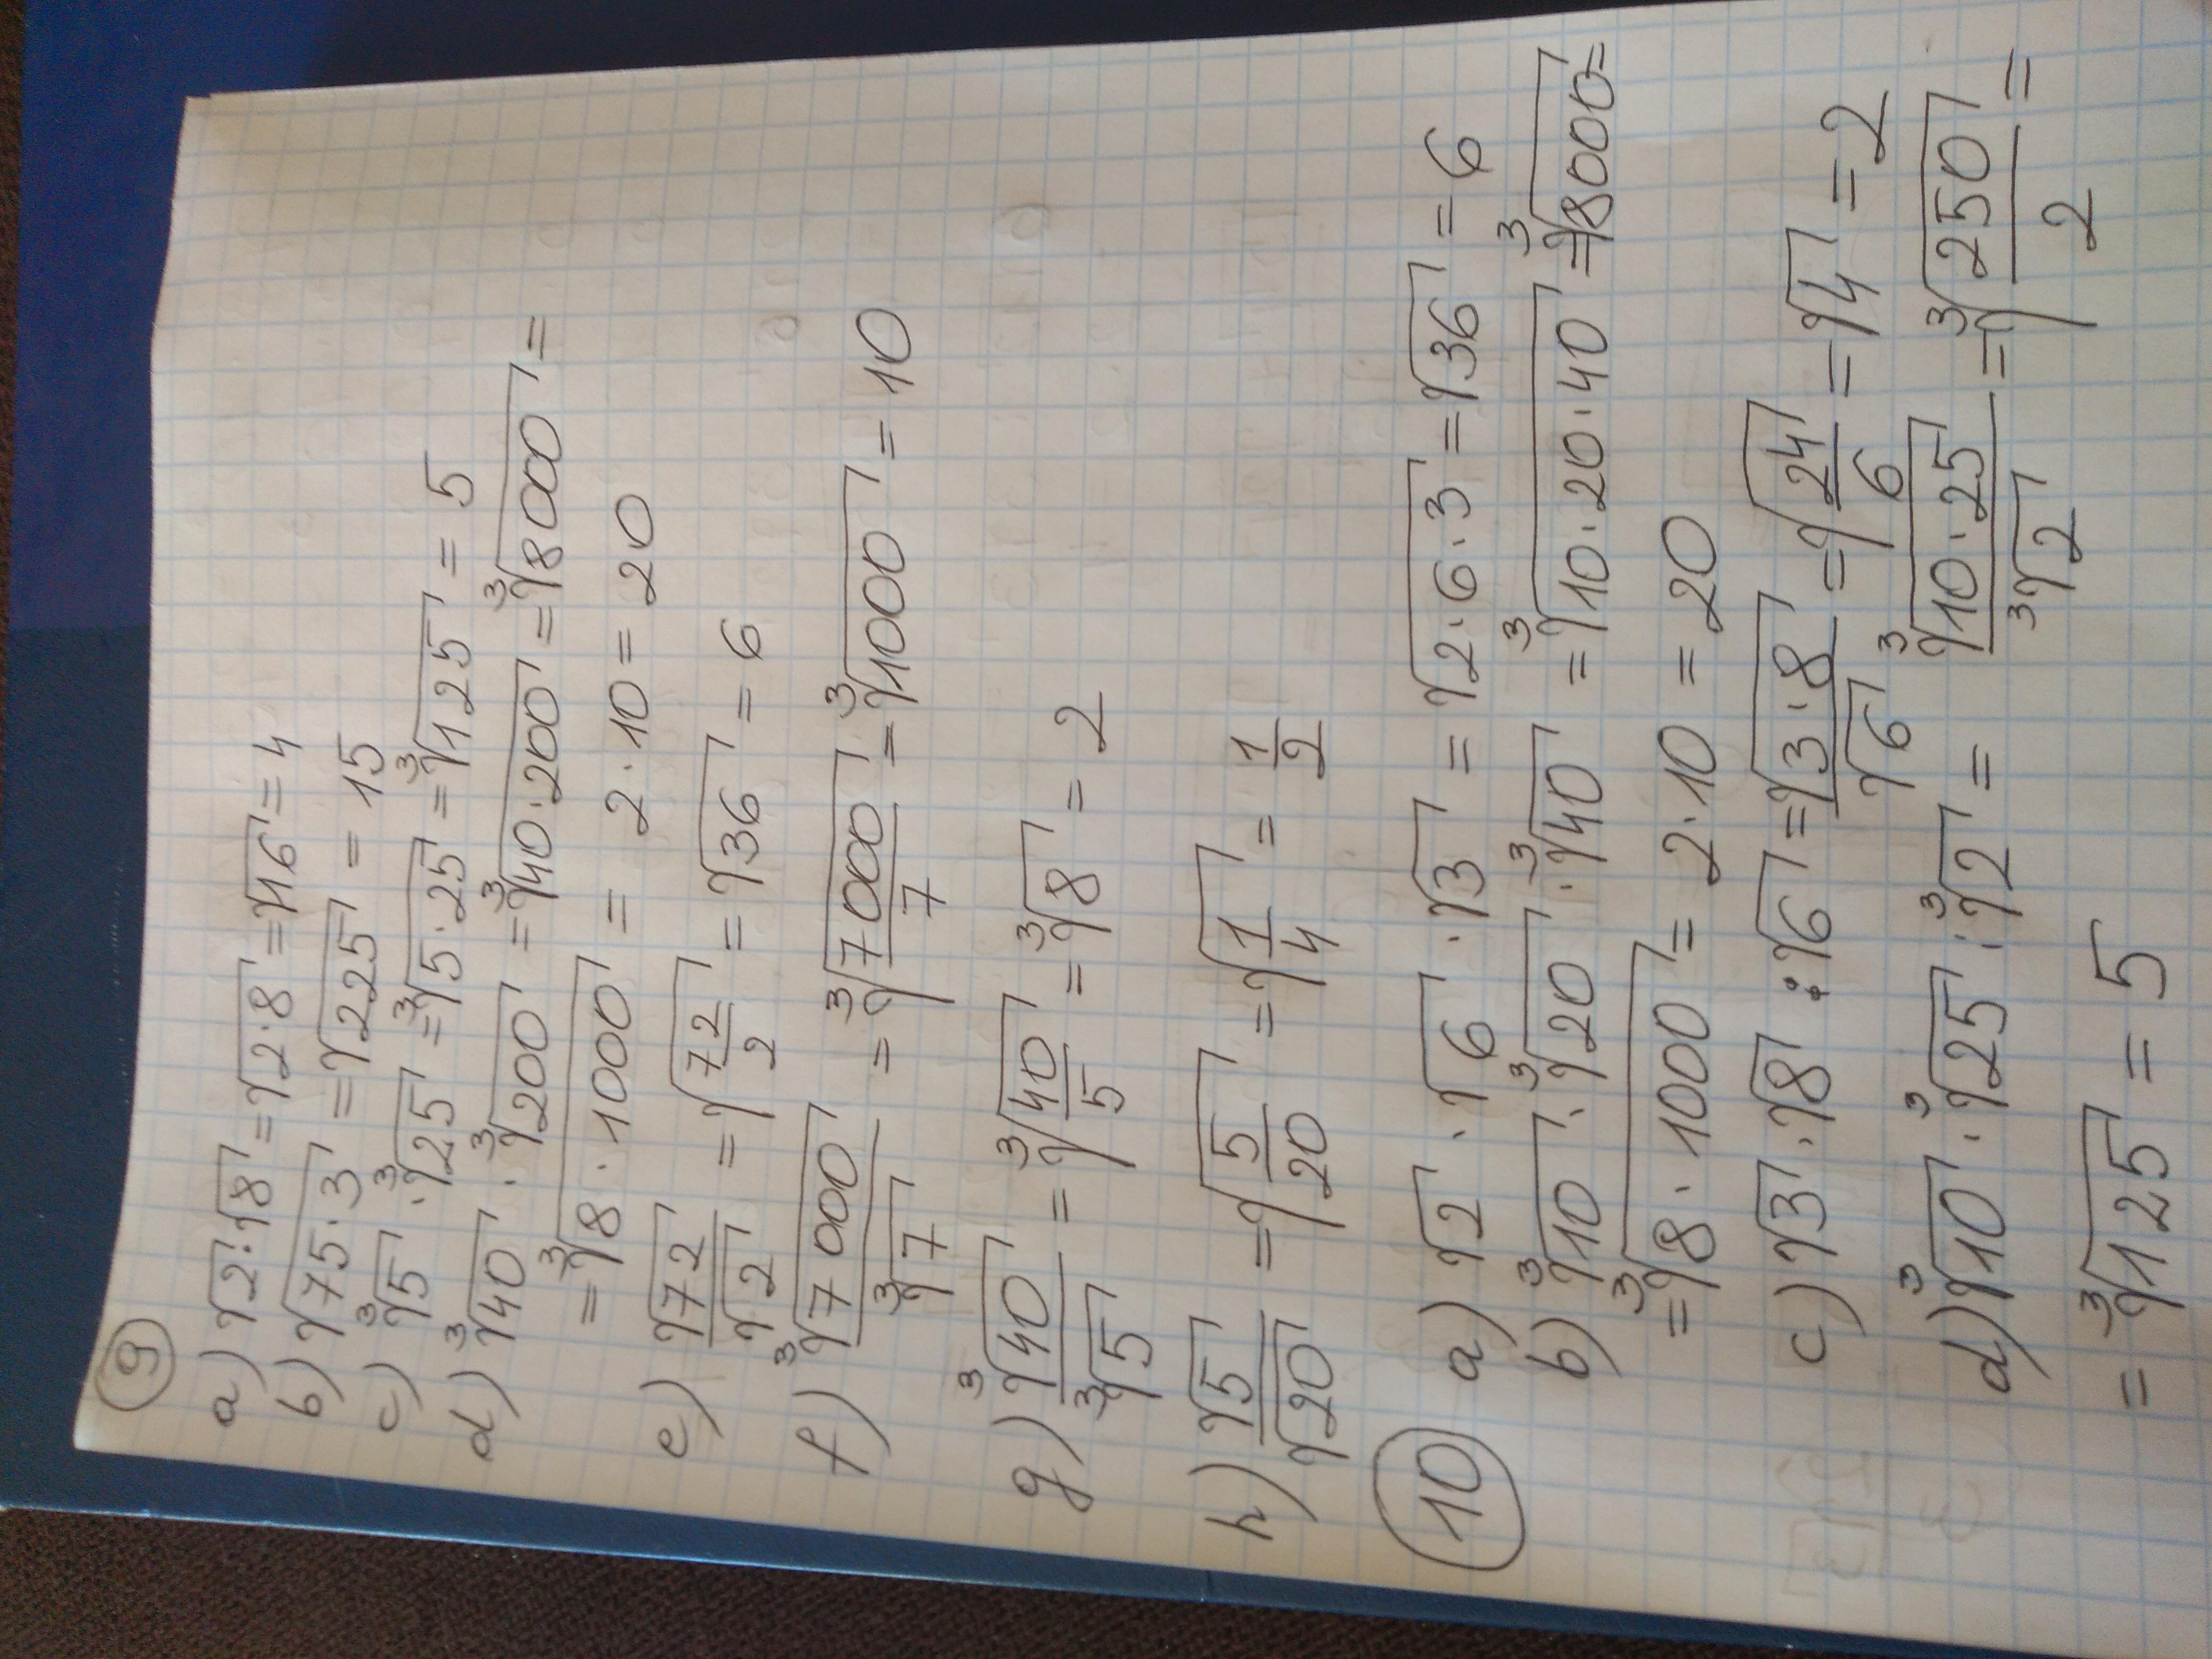 9
a) √2·√8 = √2·8 = √16 = 4
b) √75·3 = √225 = 15
c) ³√5 · ³√25 = ³√5·25 = ³√125 = 5
d) ³√40 · ³√200 = ³√40·200 = ³√8000 =
= ³√8·1000 = 2·10 = 20
e) √72/√2 = √(72/2) = √36 = 6
f) ³√7000/³√7 = ³√(7000/7) = ³√1000 = 10
g) ³√40/³√5 = ³√(40/5) = ³√8 = 2
h) √5/√20 = √(5/20) = √(1/4) = 1/2
10
a) √2 · √6 · √3 = √2·6·3 = √36 = 6
b) ³√10 · ³√20 · ³√40 = ³√10·20·40 = ³√8000 =
= ³√8·1000 = 2·10 = 20
c) √3 · √8 : √6 = √3·8/√6 = √(24/6) = √4 = 2
d) ³√10 · ³√25 : ³√2 = ³√10·25/³√2 = ³√(250/2) =
= ³√125 = 5